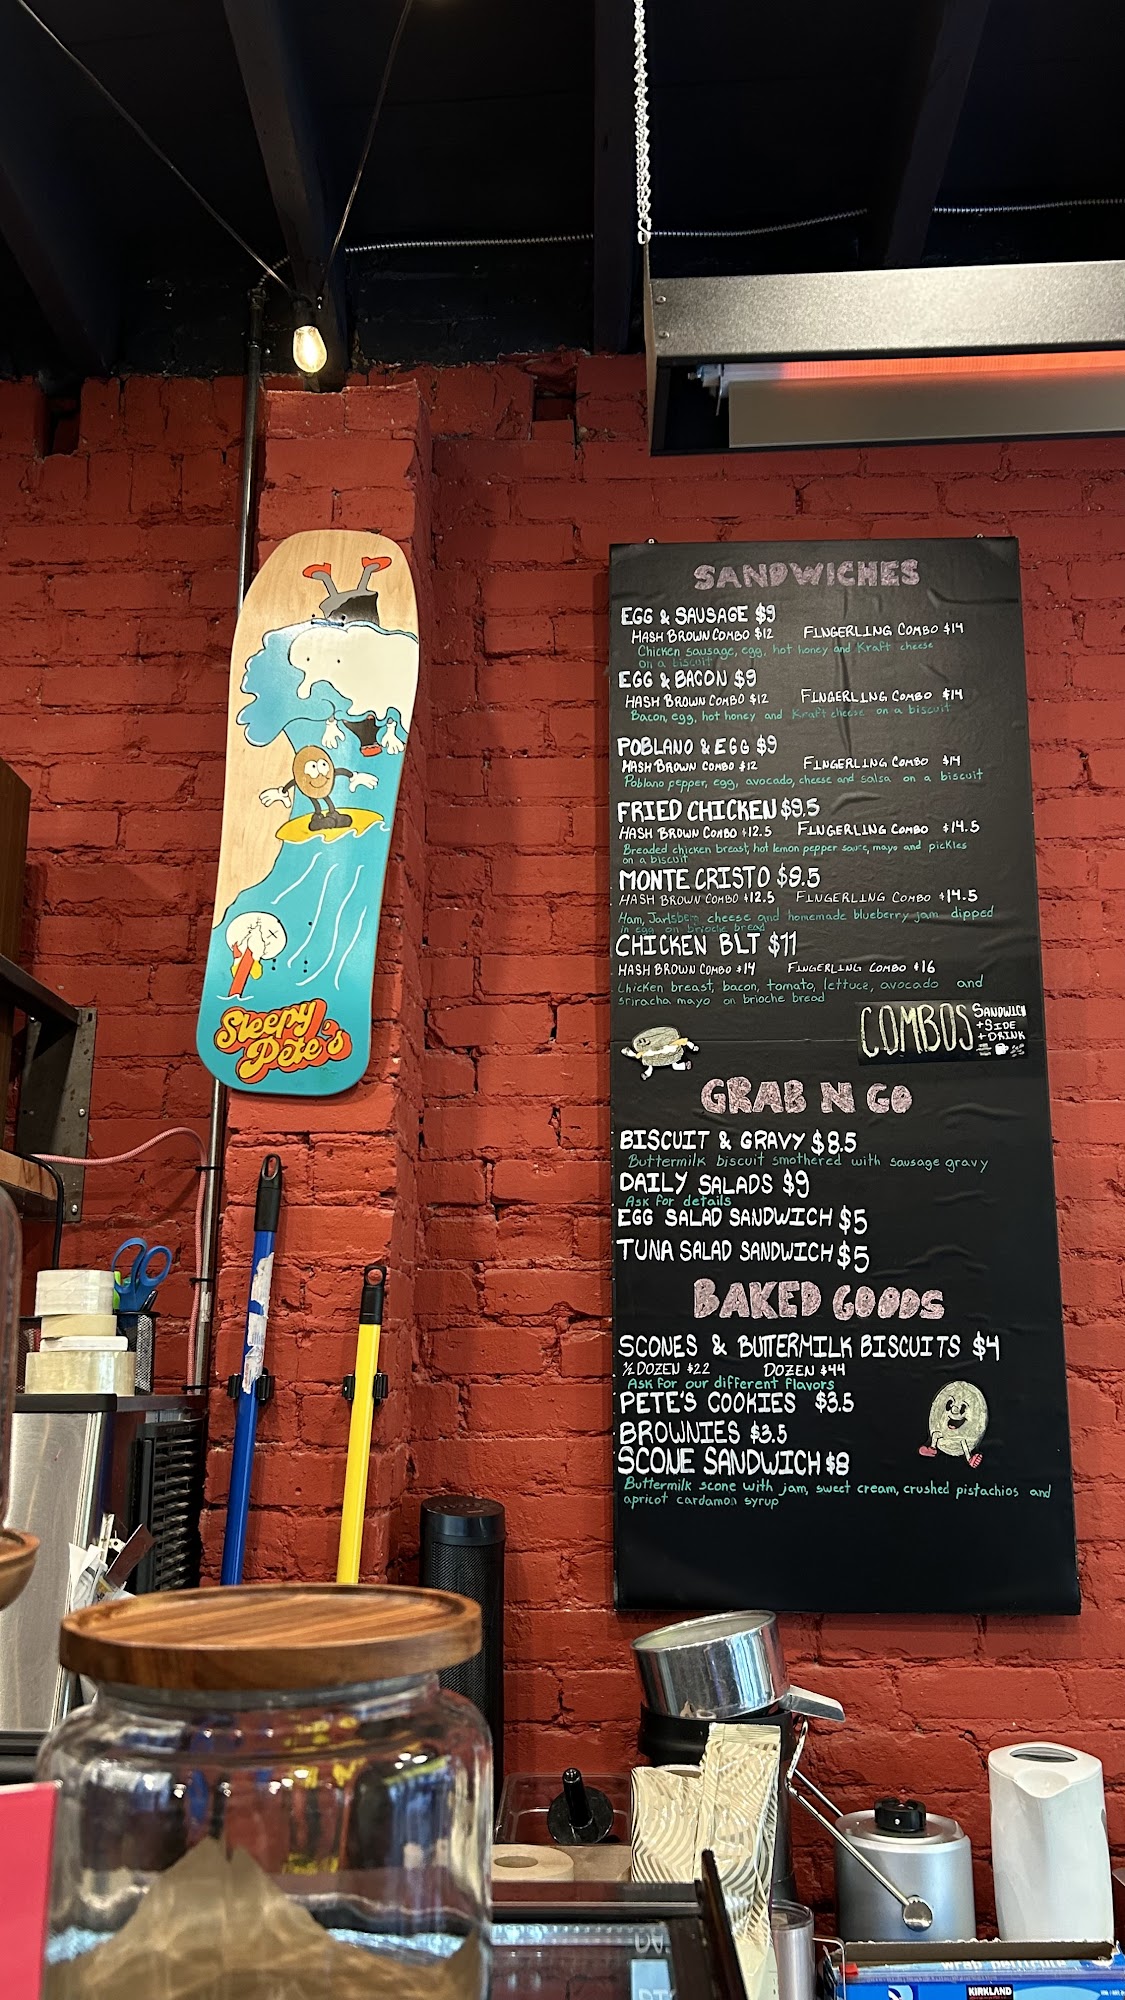 Sleepy
Pete's
SANDWICHES
EGG & SAUSAGE $9
HASH BROWN COMBO $12 FINGERLING COMBO $14
Chicken sausage, egg, hot honey and Kraft cheese
on a biscuit
EGG & BACON $9
HASH BROWN COMBO $12 FINGERLING COMBO $14
Bacon, egg, hot honey and Kraft cheese on a biscuit
POBLANO & EGG $9
HASH BROWN COMBO $12 FINGERLING COMBO $14
Poblano pepper, egg, avocado, cheese and salsa on a biscuit
FRIED CHICKEN $9.5
HASH BROWN COMBO $12.5 FINGERLING COMBO $14.5
Breaded chicken breast, hot lemon pepper sauce, mayo and pickles
on a biscuit
MONTE CRISTO $9.5
HASH BROWN COMBO $12.5 FINGERLING COMBO $14.5
Ham, Jarlsberg cheese and homemade blueberry jam dipped
in egg on brioche bread
CHICKEN BLT $11
HASH BROWN COMBO $14 FINGERLING COMBO $16
Chicken breast, bacon, tomato, lettuce, avocado and
sriracha mayo on brioche bread
COMBOS SANDWICH
+ SIDE
+ DRINK
GRAB N GO
BISCUIT & GRAVY $8.5
Buttermilk biscuit smothered with sausage gravy
DAILY SALADS $9
Ask for details
EGG SALAD SANDWICH $5
TUNA SALAD SANDWICH $5
BAKED GOODS
SCONES & BUTTERMILK BISCUITS $4
½ DOZEN $22 DOZEN $44
Ask for our different flavors
PETE'S COOKIES $3.5
BROWNIES $3.5
SCONE SANDWICH $8
Buttermilk scone with jam, sweet cream, crushed pistachios and
apricot cardamon syrup
KIRKLAND